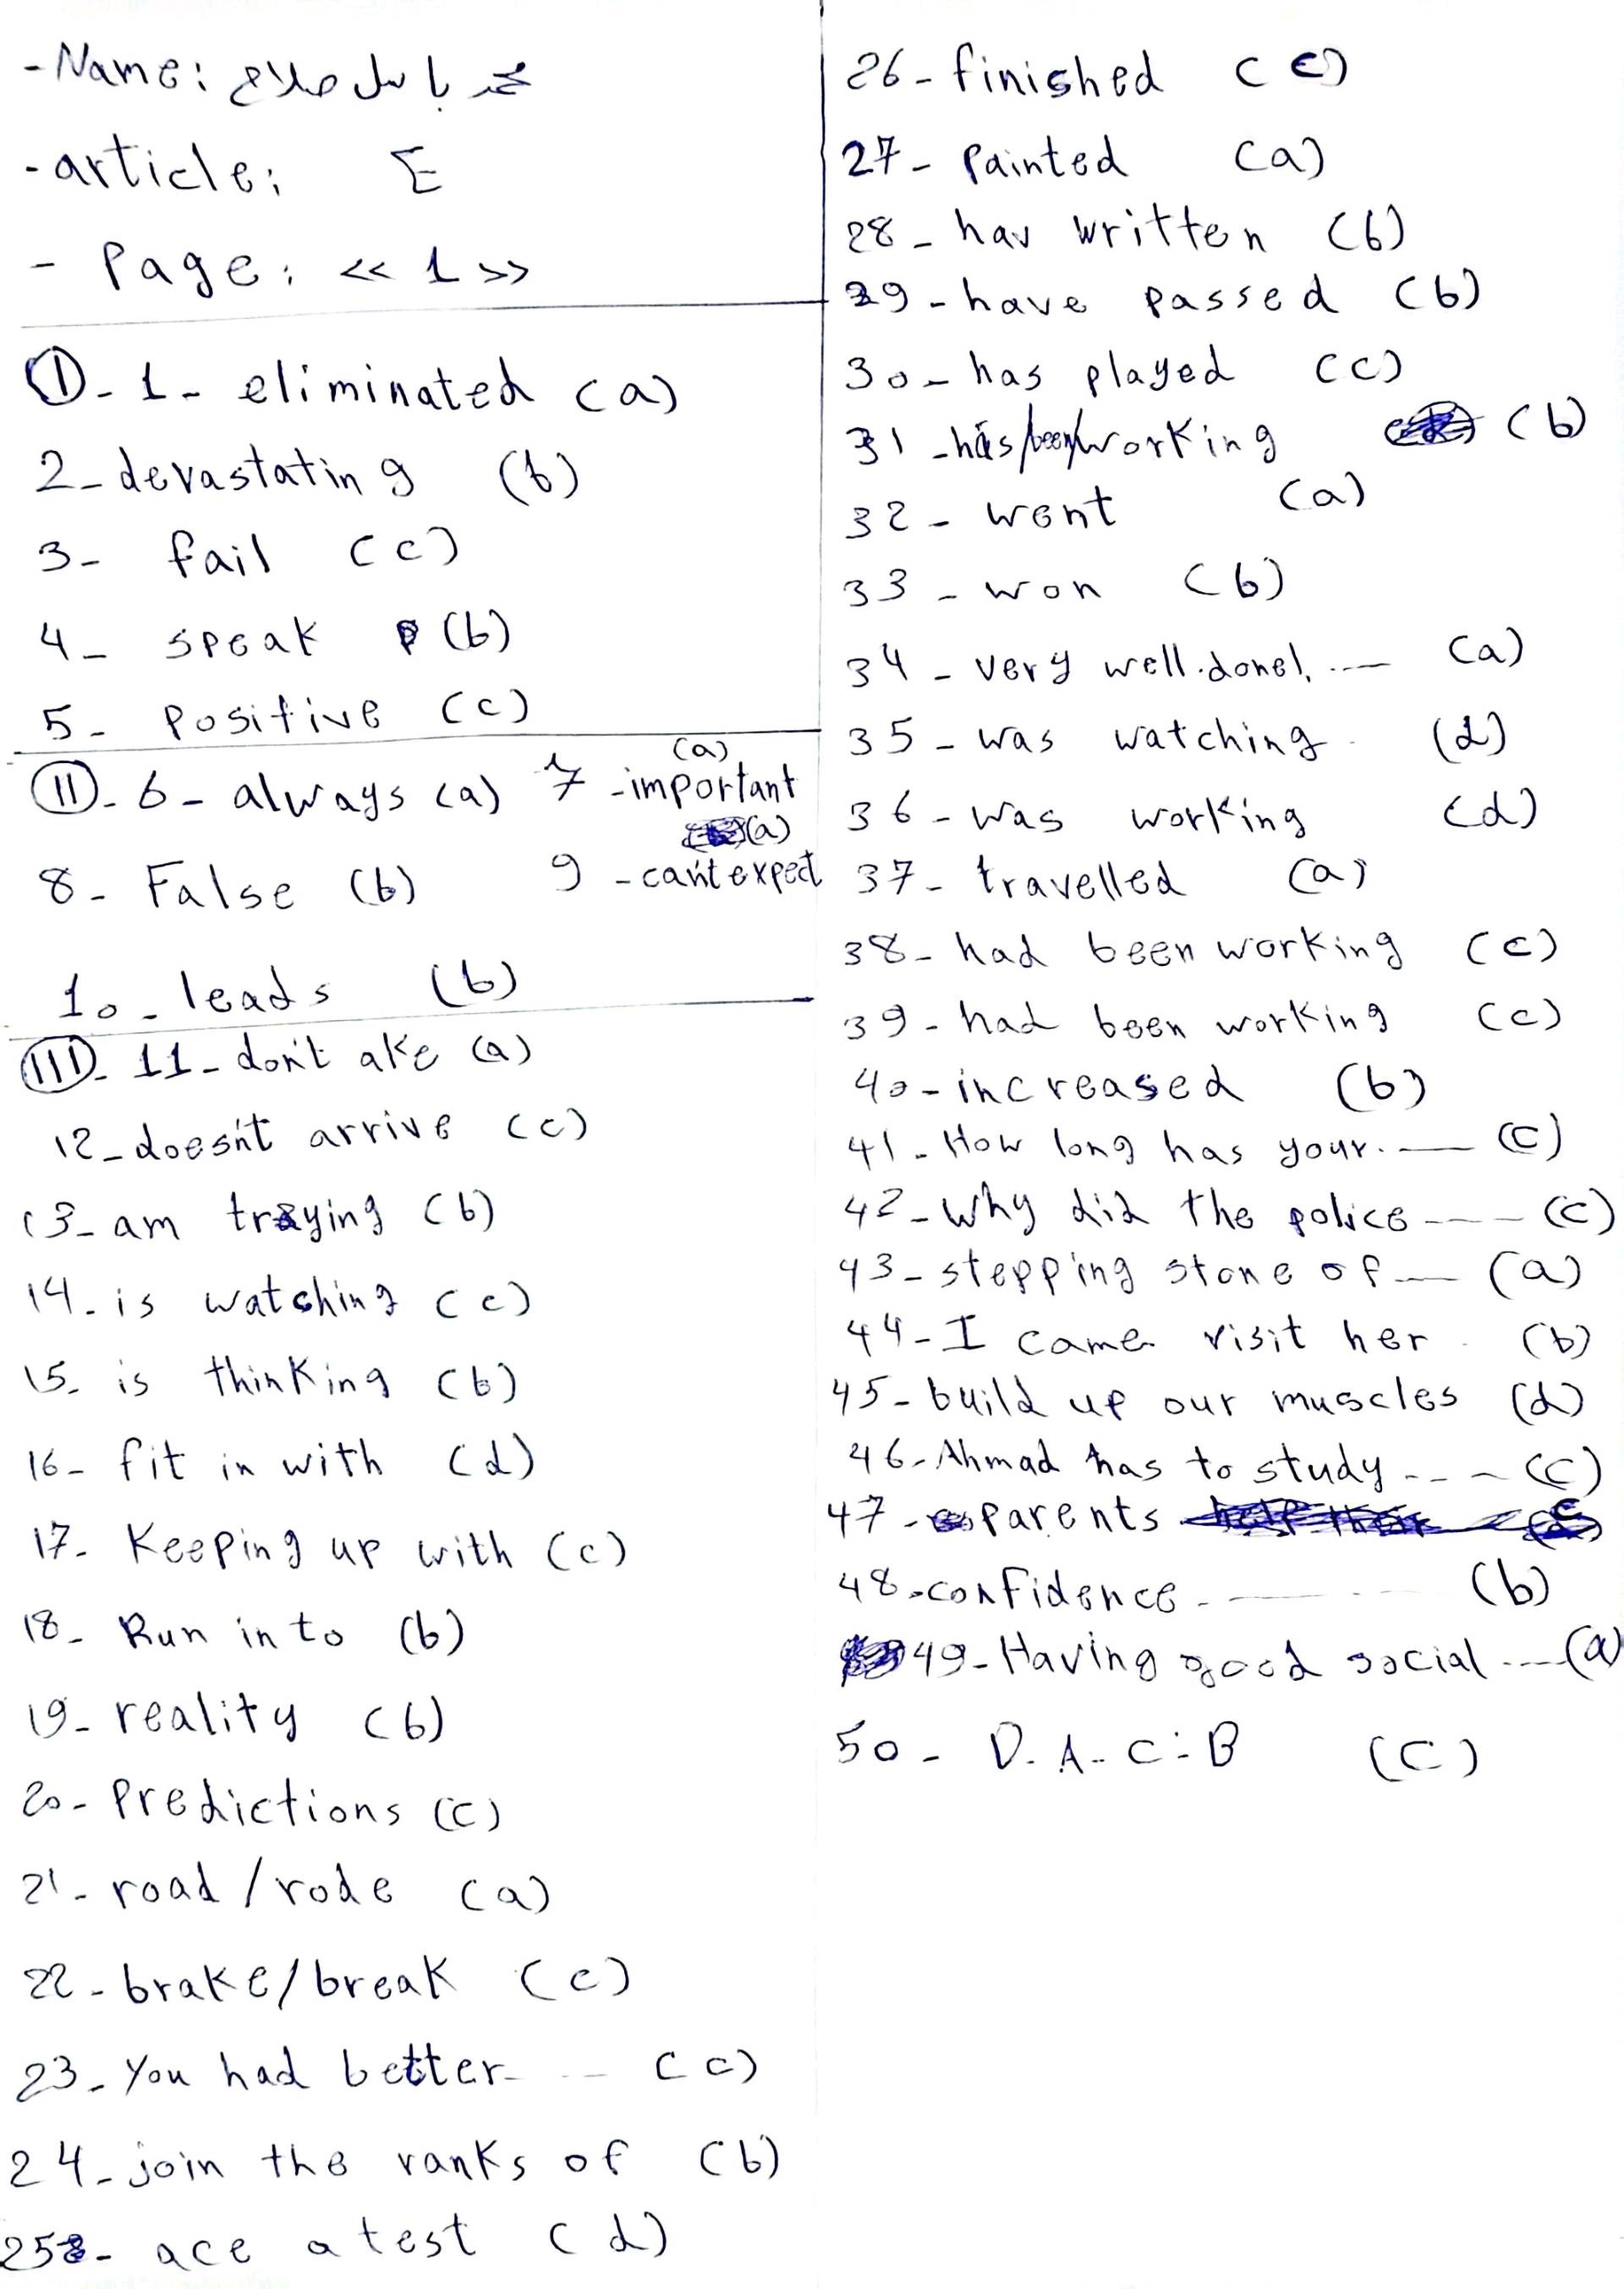 - Name: محمد باسل صلاح
- article: E
- Page: << 1 >>
I - 1 - eliminated (a)
2 - devastating (b)
3 - fail (c)
4 - speak (b)
5 - Positive (c)
II - 6 - always (a) 7 - important (a)
8 - False (b) 9 - can't expect (a)
10 - leads (b)
III - 11 - don't ake (a)
12 - doesn't arrive (c)
13 - am traying (b)
14 - is watching (c)
15 - is thinking (b)
16 - fit in with (d)
17 - Keeping up with (c)
18 - Run in to (b)
19 - reality (b)
20 - Predictions (c)
21 - road / rode (a)
22 - brake / break (c)
23 - You had better --- (c)
24 - join the ranks of (b)
25 - ace a test (d)
26 - finished (c)
27 - Painted (a)
28 - hav written (b)
29 - have passed (b)
30 - has played (c)
31 - has/been/working (b)
32 - went (a)
33 - won (b)
34 - very well.done!, .... (a)
35 - was watching (d)
36 - was working (d)
37 - travelled (a)
38 - had been working (c)
39 - had been working (c)
40 - increased (b)
41 - How long has your. --- (c)
42 - Why did the police ---- (c)
43 - stepping stone of --- (a)
44 - I came visit her (b)
45 - build up our muscles (d)
46 - Ahmad has to study --- (c)
47 - Parents
48 - confidence ------ (b)
49 - Having good social .... (a)
50 - D. A - C - B (C)